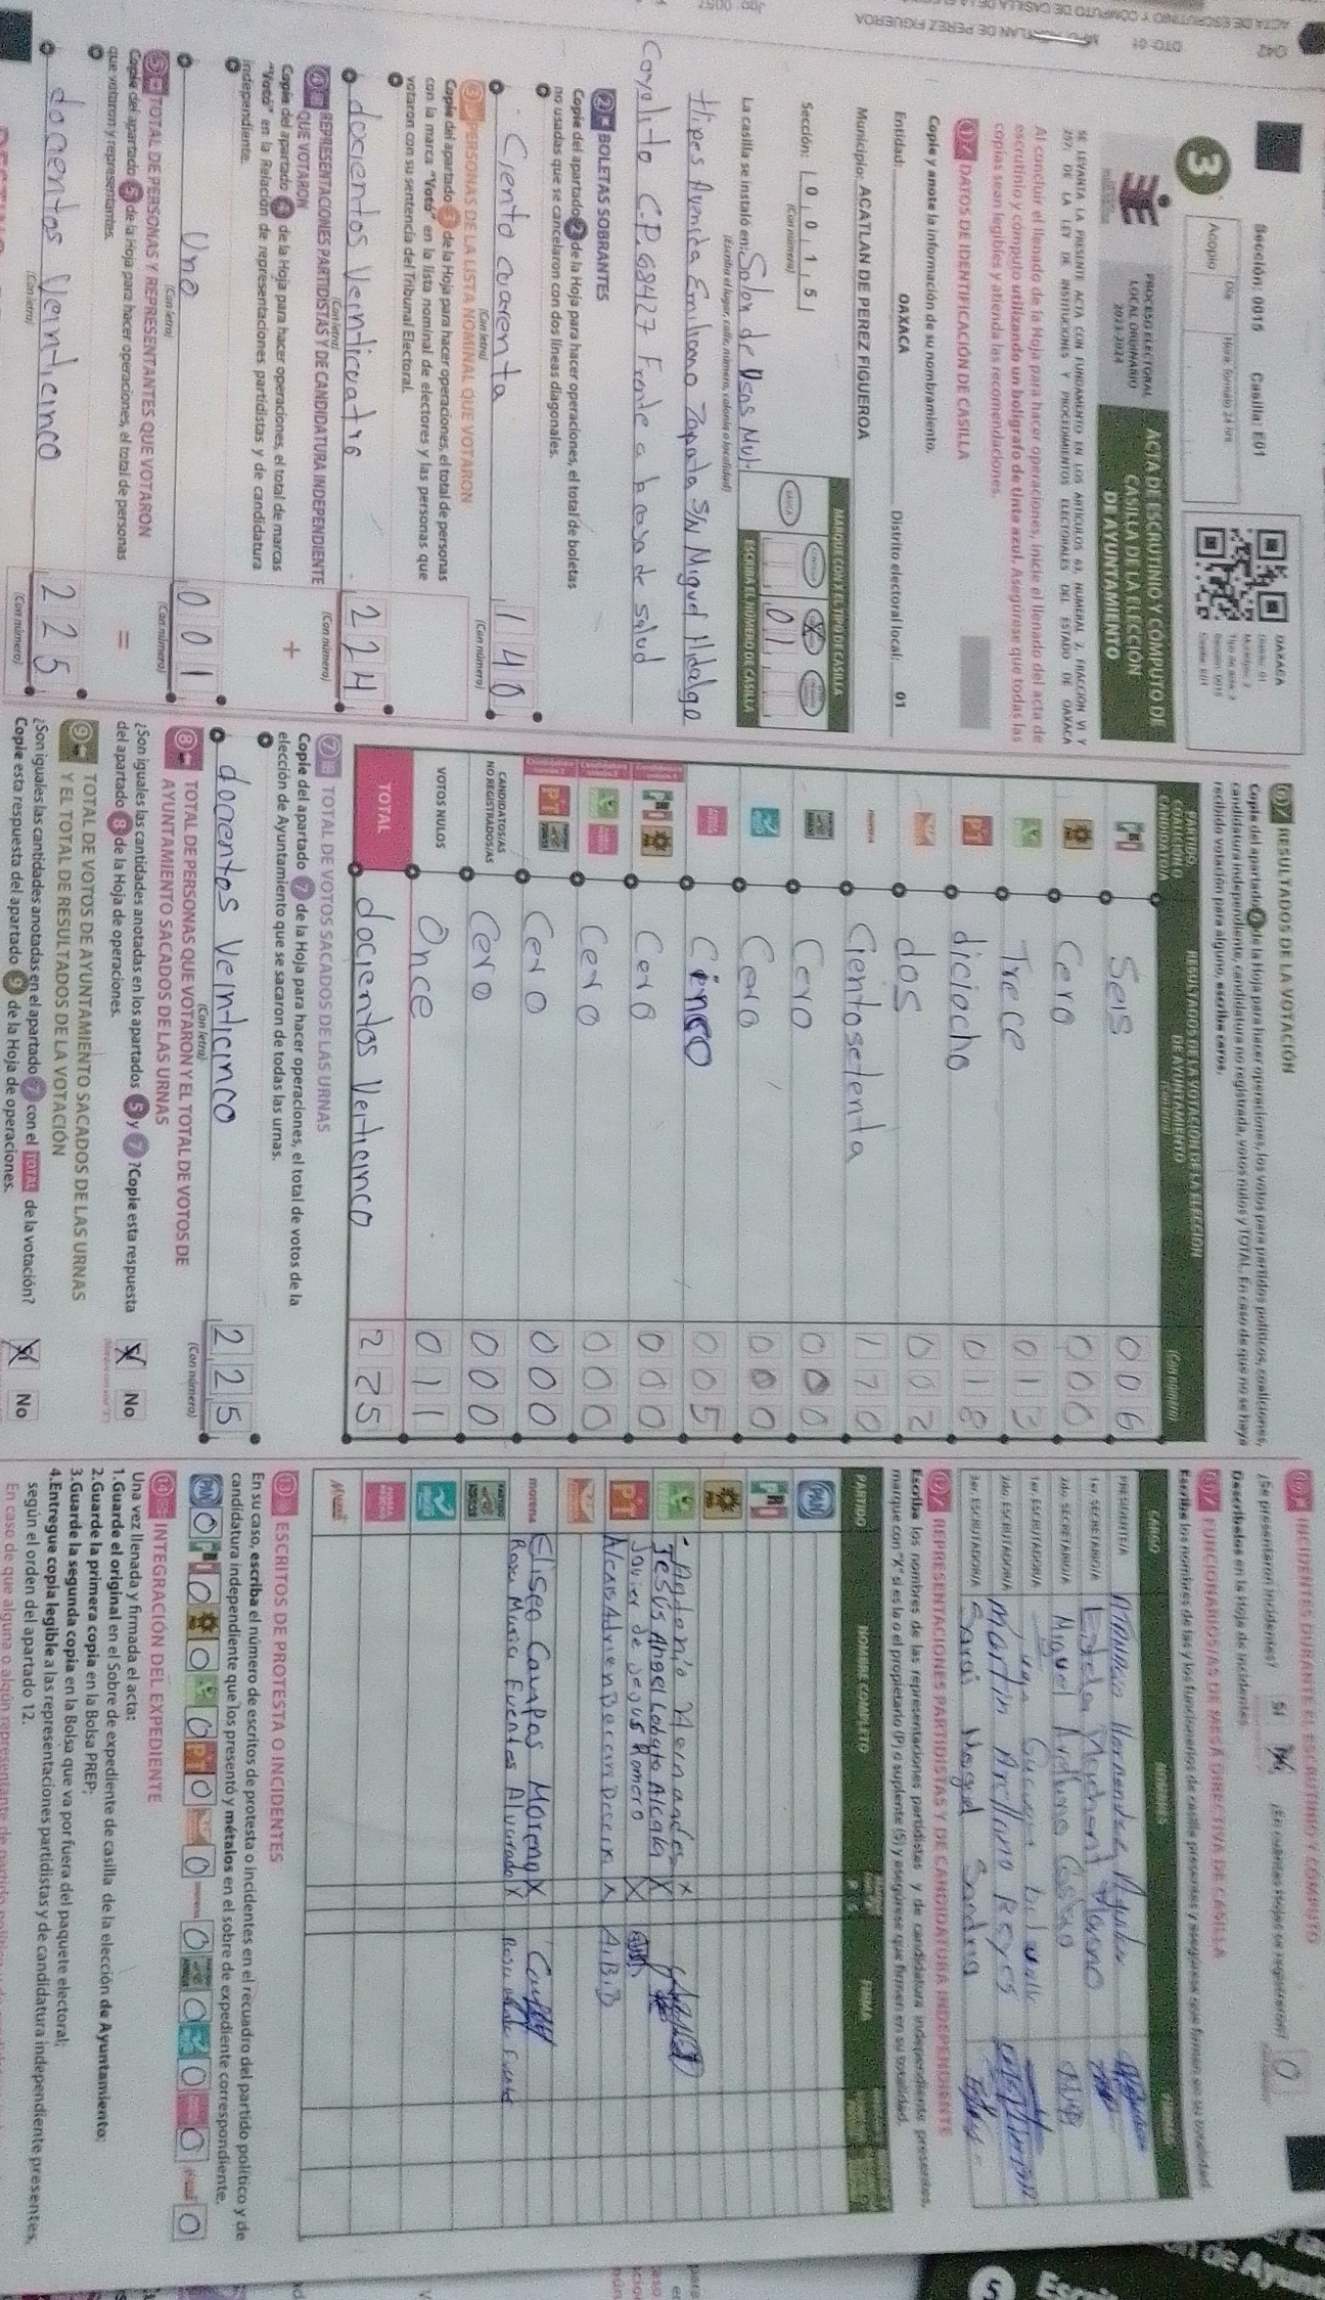 Sección: 0015 Casilla: E01
OAXACA
Distrito: 01
Día
Hora formato 24 hrs
Acopio
3
PROCESO ELECTORAL
LOCAL ORDINARIO
2023-2024
ACTA DE ESCRUTINIO Y CÓMPUTO DE
CASILLA DE LA ELECCIÓN
DE AYUNTAMIENTO
SE LEVANTA LA PRESENTE ACTA CON FUNDAMENTO EN LOS ARTÍCULOS 63, NUMERAL 2, FRACCIÓN VI Y
207; DE LA LEY DE INSTITUCIONES Y PROCEDIMIENTOS ELECTORALES DEL ESTADO DE OAXACA
Al concluir el llenado de la Hoja para hacer operaciones, inicie el llenado del acta de
escrutinio y cómputo utilizando un bolígrafo de tinta azul. Asegúrese que todas las
copias sean legibles y atienda las recomendaciones.
1 DATOS DE IDENTIFICACIÓN DE CASILLA
Copie y anote la información de su nombramiento.
Entidad: OAXACA Distrito electoral local: 01
Municipio: ACATLAN DE PEREZ FIGUEROA
MARQUE CON X EL TIPO DE CASILLA
Sección: 0 0 1 5
(Con número)
BÁSICA
ESCRIBA EL NÚMERO DE CASILLA
01
La casilla se instaló en: Salon de Usos Multi
(Escriba el lugar, calle, número, colonia o localidad)
tliples Avenida Emiliano Zapata S/N Miguel Hidalgo
Coyolito C.P. 68427 Frente a la casa de salud
2 BOLETAS SOBRANTES
Copie del apartado 2 de la Hoja para hacer operaciones, el total de boletas
no usadas que se cancelaron con dos líneas diagonales.
Ciento cuarenta 140
(Con letra) (Con número)
3 PERSONAS DE LA LISTA NOMINAL QUE VOTARON
Copie del apartado 3 de la Hoja para hacer operaciones, el total de personas
con la marca "Votó" en la lista nominal de electores y las personas que
votaron con su sentencia del Tribunal Electoral.
docientos Veinticuatro 224
(Con letra) (Con número)
4 REPRESENTACIONES PARTIDISTAS Y DE CANDIDATURA INDEPENDIENTE
QUE VOTARON
Copie del apartado 4 de la Hoja para hacer operaciones, el total de marcas
"Votó" en la Relación de representaciones partidistas y de candidatura
independiente.
+
Uno 001
(Con letra) (Con número)
5 TOTAL DE PERSONAS Y REPRESENTANTES QUE VOTARON
Copie del apartado 5 de la Hoja para hacer operaciones, el total de personas
que votaron y representantes.
=
docientos Veinticinco 225
(Con letra) (Con número)
6 RESULTADOS DE LA VOTACIÓN
Copie del apartado 6 de la Hoja para hacer operaciones, los votos para partidos políticos, coaliciones,
candidatura independiente, candidatura no registrada, votos nulos y TOTAL. En caso de que no se haya
recibido votación para alguno, escriba ceros.
PARTIDO,
COALICIÓN O
CANDIDATO/A
RESULTADOS DE LA VOTACIÓN DE LA ELECCIÓN
DE AYUNTAMIENTO
(Con letra)
(Con número)
PRI Seis 006
Cero 000
Trece 013
PT dieciocho 018
dos 002
morena Cientosetenta 170
Cero 000
Cero 000
Cinco 005
PRI Cero 000
Cero 000
PT Cero 000
CANDIDATOS/AS
NO REGISTRADOS/AS
Cero 000
VOTOS NULOS Once 011
TOTAL docientos Veinticinco 225
7 TOTAL DE VOTOS SACADOS DE LAS URNAS
Copie del apartado 7 de la Hoja para hacer operaciones, el total de votos de la
elección de Ayuntamiento que se sacaron de todas las urnas.
docientos Veinticinco 225
(Con letra) (Con número)
8 TOTAL DE PERSONAS QUE VOTARON Y EL TOTAL DE VOTOS DE
AYUNTAMIENTO SACADOS DE LAS URNAS
¿Son iguales las cantidades anotadas en los apartados 5 y 7 ?Copie esta respuesta
del apartado 8 de la Hoja de operaciones.
Sí No
9 TOTAL DE VOTOS DE AYUNTAMIENTO SACADOS DE LAS URNAS
Y EL TOTAL DE RESULTADOS DE LA VOTACIÓN
¿Son iguales las cantidades anotadas en el apartado 7 con el TOTAL de la votación?
Copie esta respuesta del apartado 9 de la Hoja de operaciones.
Sí No
10 INCIDENTES DURANTE EL ESCRUTINIO Y CÓMPUTO
¿Se presentaron incidentes? Sí No ¿En cuántas Hojas se registraron? 0
Descríbalos en la Hoja de incidentes
11 FUNCIONARIOS/AS DE MESA DIRECTIVA DE CASILLA
Escriba los nombres de las y los funcionarios de casilla presentes y asegúrese que firmen en su totalidad
CARGO NOMBRES FIRMAS
PRESIDENTE/A Hernandez
1er. SECRETARIO/A
2do. SECRETARIO/A Miguel
1er. ESCRUTADOR/A
2do. ESCRUTADOR/A Martin Arellano Reyes
3er. ESCRUTADOR/A Sarai Sandria
12 REPRESENTACIONES PARTIDISTAS Y DE CANDIDATURA INDEPENDIENTE
Escriba los nombres de las representaciones partidistas y de candidatura independiente presentes,
marque con "X" si es la o el propietario (P) o suplente (S) y asegúrese que firmen en su totalidad.
PARTIDO NOMBRE COMPLETO FIRMA
PAN
PRI
Antonio Hernandez X
Jesús Angel Lobato Alcala X
PT Javier de Jesus Romero X
A.B.B
morena Eliseo Campos Moreno X
Rosa Maria Fuentes Alvarado X
13 ESCRITOS DE PROTESTA O INCIDENTES
En su caso, escriba el número de escritos de protesta o incidentes en el recuadro del partido político y de
candidatura independiente que los presentó y métalos en el sobre de expediente correspondiente.
PAN 0 PRI 0 0 0 PT 0 0 morena 0 0 0 0 0
14 INTEGRACIÓN DEL EXPEDIENTE
Una vez llenada y firmada el acta:
1.Guarde el original en el Sobre de expediente de casilla de la elección de Ayuntamiento;
2.Guarde la primera copia en la Bolsa PREP;
3.Guarde la segunda copia en la Bolsa que va por fuera del paquete electoral;
4.Entregue copia legible a las representaciones partidistas y de candidatura independiente presentes,
según el orden del apartado 12.